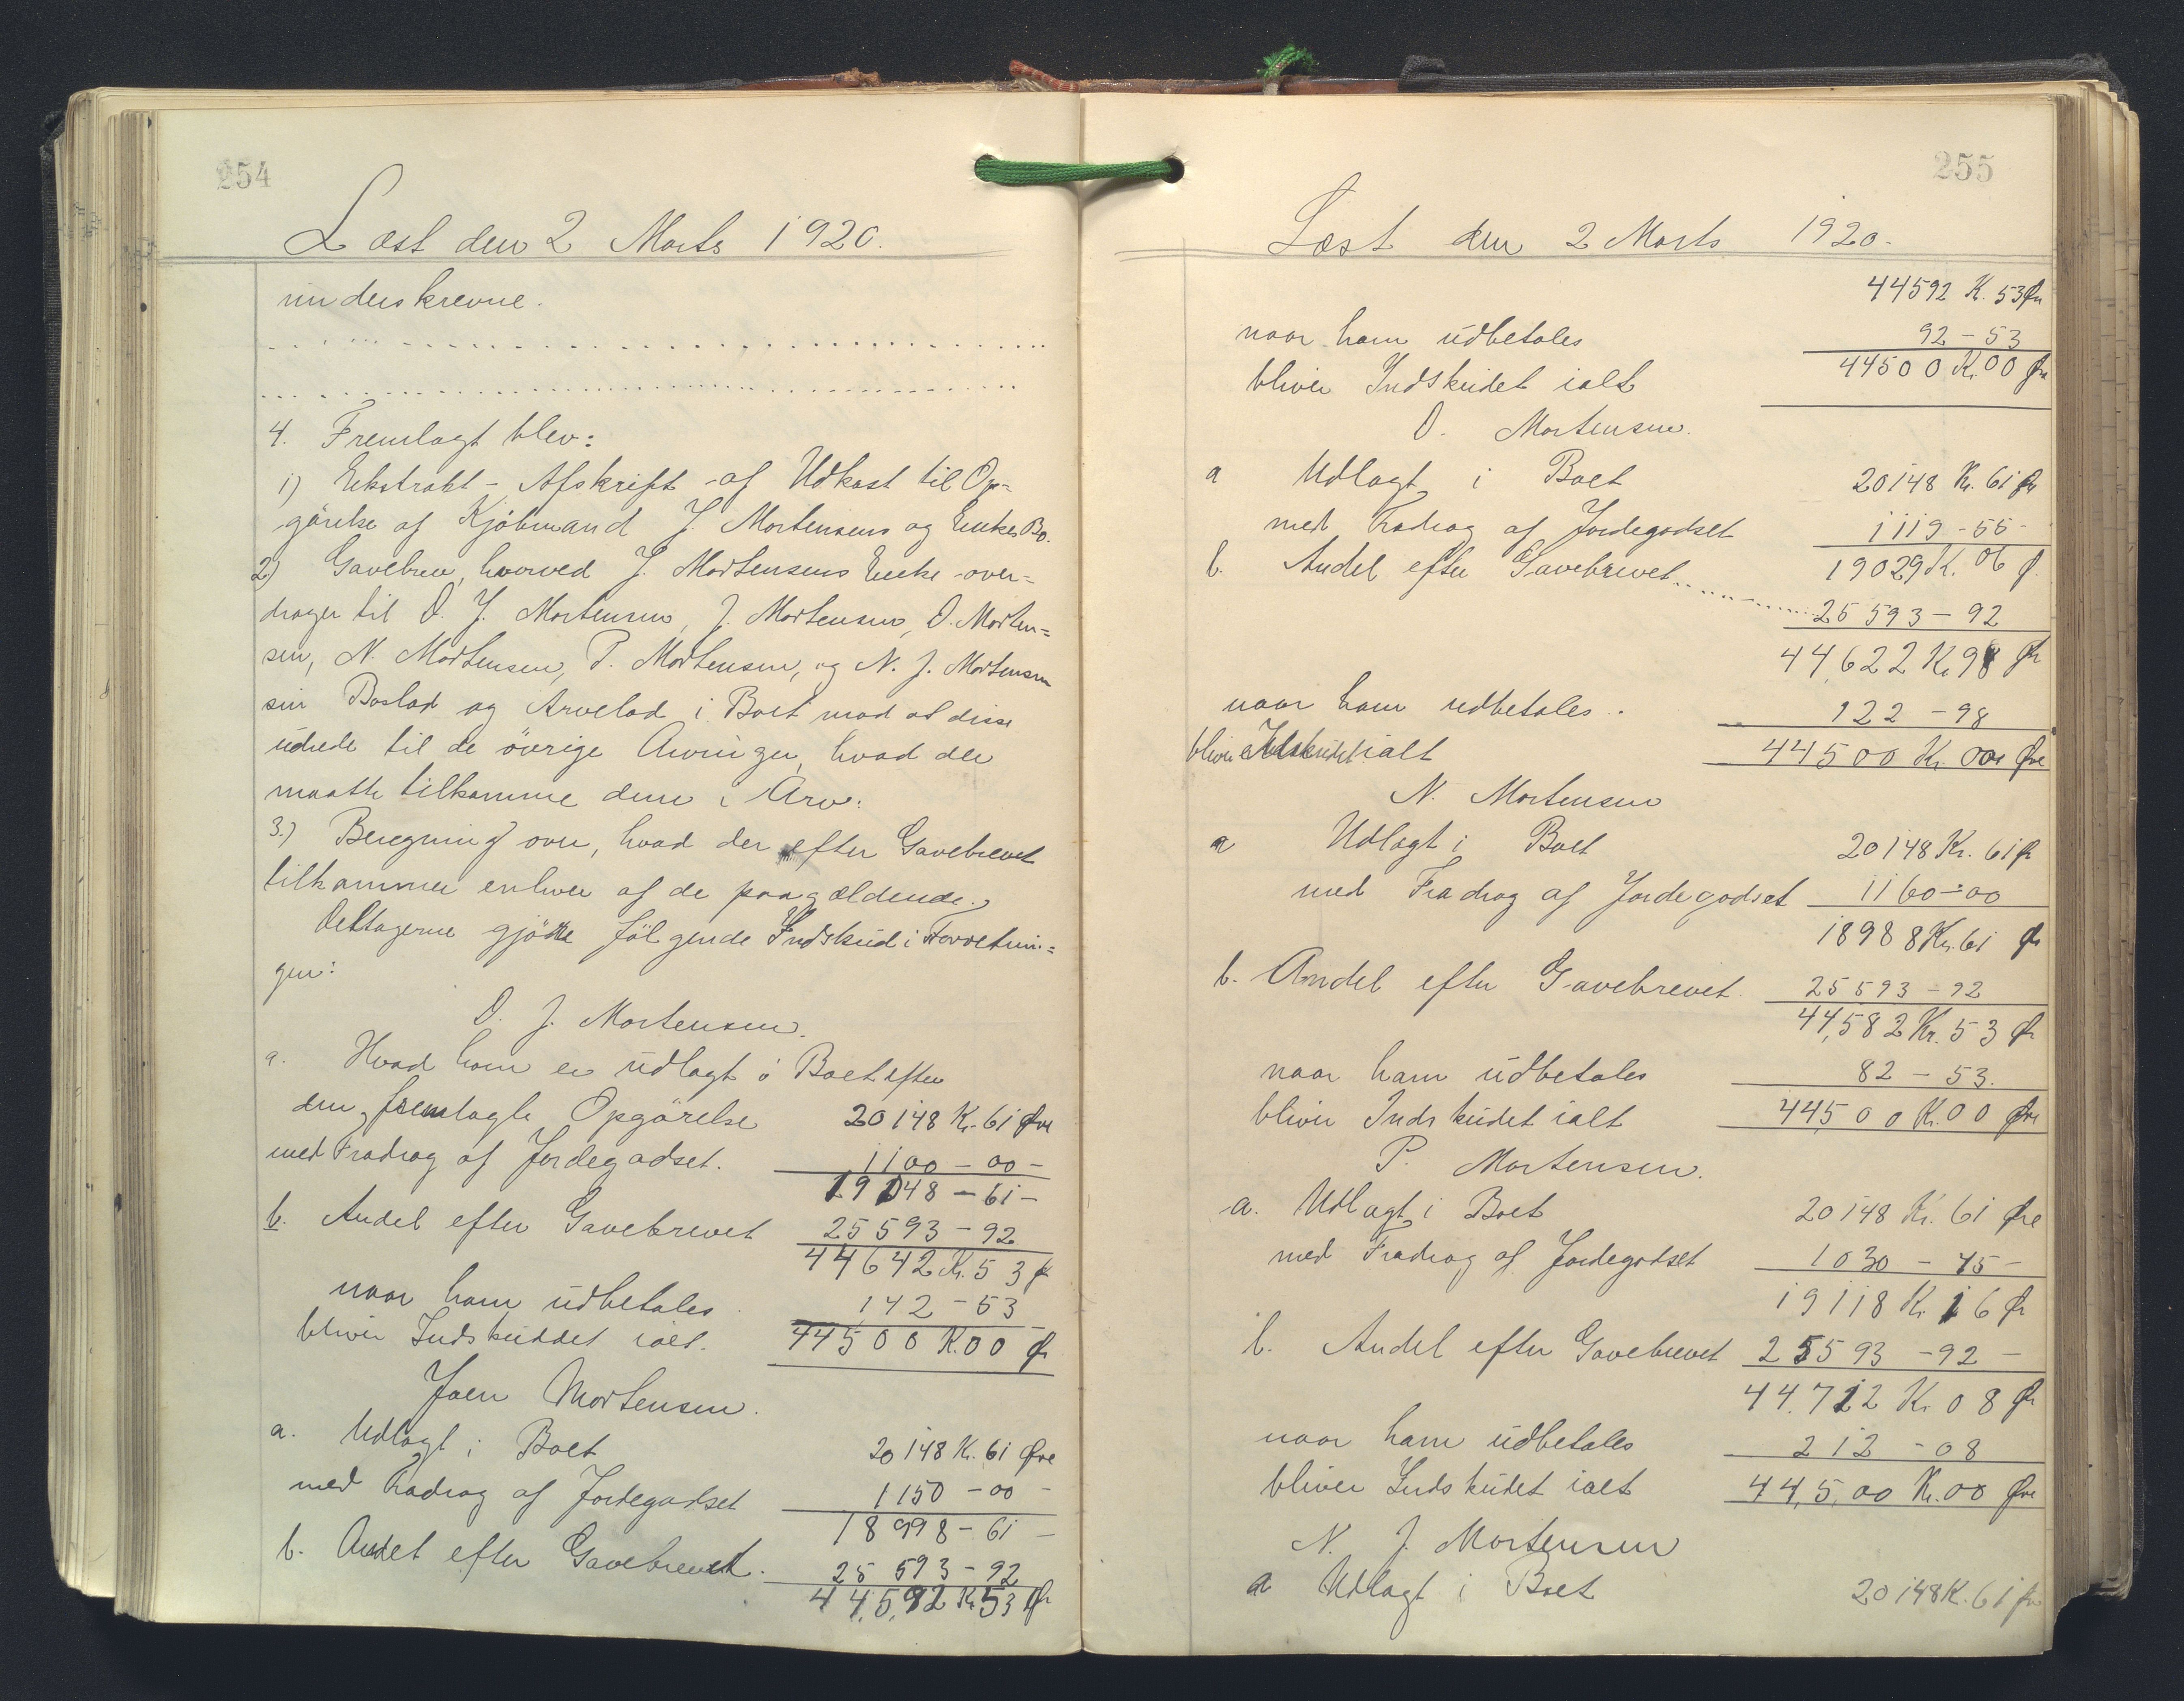 254
Læst den 2 Marts 1920.
underskrevne.
4. Fremlagt blev:
1) Ekstrakt-Afskrift af Udkast til Op=
görelse af Kjöbmand J. Mortensens og Enkes Bo.
2) Gavebrev, hvorved J. Mortensens Enke over=
drager til O. J. Mortensen, J. Mortensen, O. Morten=
sen, N. Mortensen, P. Mortensen, og N. J. Mortensen
sin Boslod og Arvelod i Boet mod at disse
udrede til de övrige Arvinger, hvad der
maatte tilkomme dem i Arv.
3.) Beregning over, hvad der efter Gavebrevet
tilkommer enhver af de paagældende.
Deltagerne gjörde fölgende Indskud i Forretnin=
gen:
O. J. Mortensen.
a. Hvad ham er udlagt i Boet efter
den fremlagte Opgörelse 20148 K. 61 Øre
med Fradrag af Jordegodset. 1100 - 00 -
19048 - 61 -
b. Andel efter Gavebrevet 25593 - 92
44642 Kr. 53 Ø
naar ham udbetales 142 - 53
bliver Indskuddet ialt. 44500 K. 00 Ø
Joen Mortensen.
a. Udlagt i Boet 20148 K. 61 Øre
med Fradrag af Jordegodset 1150 - 00 -
18998 - 61 -
b. Andel efter Gavebrevet. 25593 - 92
44,5,92 Kr 53 Ør
255
Læst den 2 Marts 1920.
44592 K. 53 Ør
naar ham udbetales 92 - 53
bliver Indskudet ialt 44500 K. 00 Ør
O. Mortensen.
a Udlagt i Boet 20148 K. 61 Ør
med Fradrag af Jordegodset 1119 - 55 -
19029 K. 06 Ø.
b. Andel efter Gavebrevet 25593 - 92
44,622 K 98 Ør
naar ham udbetales. 122 - 98
bliver Indskudet ialt 44500 Kr. 00 Øre
N. Mortensen
a Udlagt i Boet 20148 Kr. 61 Ør
med Fradrag af Jordegodset 1160 - 00
18988 Kr. 61 Ør
b. Andel efter Gavebrevet. 25593 - 92
44,582 Kr. 53 Ør
naar ham udbetales 82 - 53.
bliver Indskudet ialt 44500 K. 00 Øre
P. Mortensen.
a. Udlagt i Boet 20148 Kr. 61 Øre
med Fradrag af Jordegodset 1030 - 45 -
19118 K. 16 Ør
b. Andel efter Gavebrevet 25593 - 92 -
44.712 Kr 08 Ør
naar ham udbetales 212 - 08
bliver Indskudet ialt 44,5,00 Kr. 00 Øre
N. J. Mortensen
a Udlagt i Boet 20148 K. 61 Ør